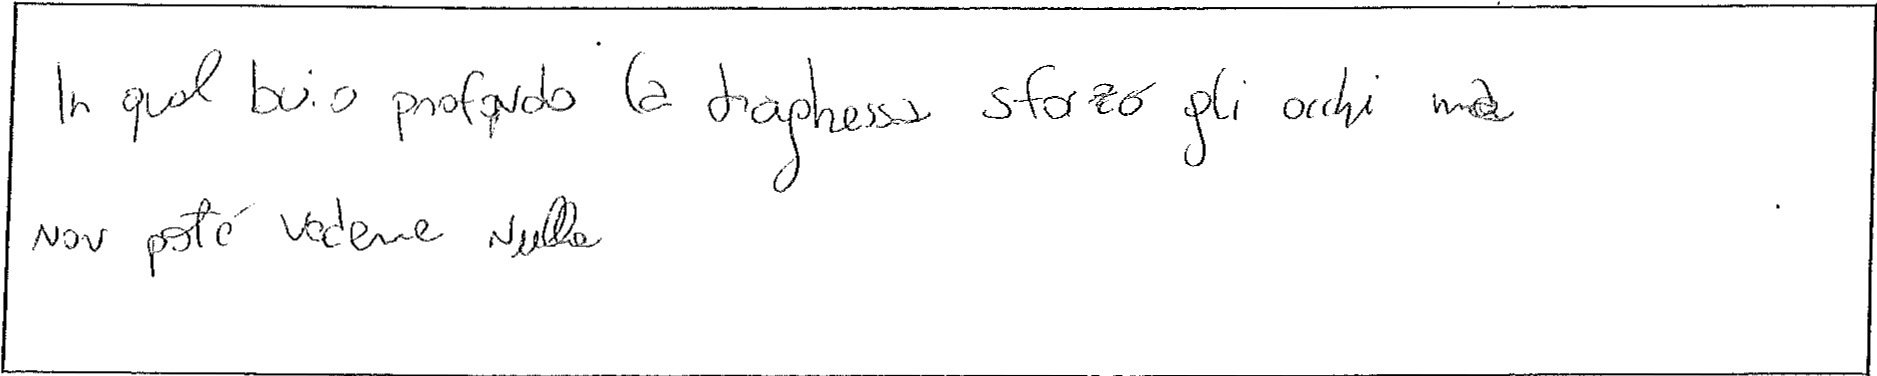 In qual buio profondo la draghessa sforzò gli occhi ma
non poté vedere nulla